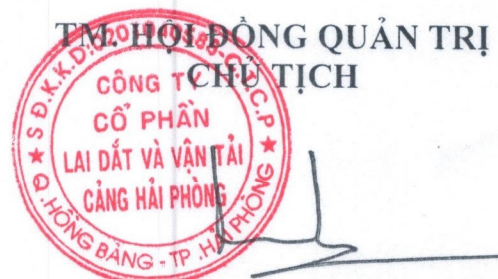 TM. HỘI ĐỒNG QUẢN TRỊ
CHỦ TỊCH
CÔNG TY
CỔ PHẦN
LAI DẮT VÀ VẬN TẢI
CẢNG HẢI PHÒNG
Q. HỒNG BÀNG - TP. HẢI PHÒNG